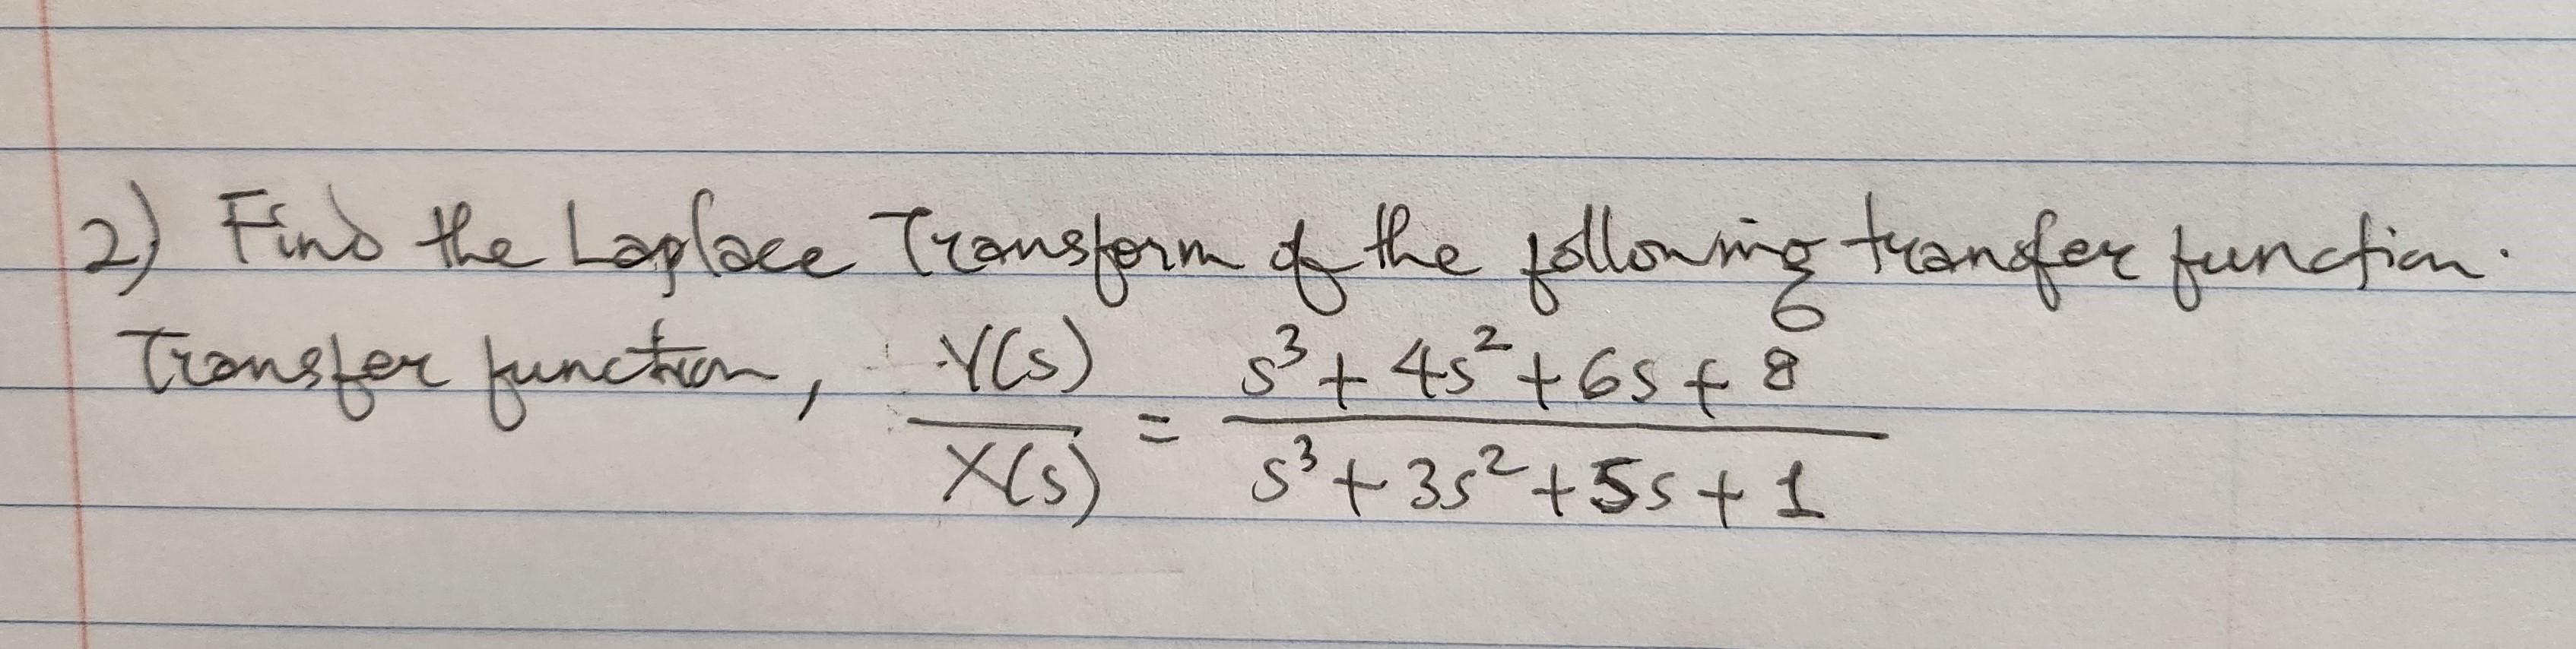 2) Find the Laplace Transform of the following transfer function.
Transfer function, Y(s)/X(s) = (s³ + 4s² + 6s + 8)/(s³ + 3s² + 5s + 1)